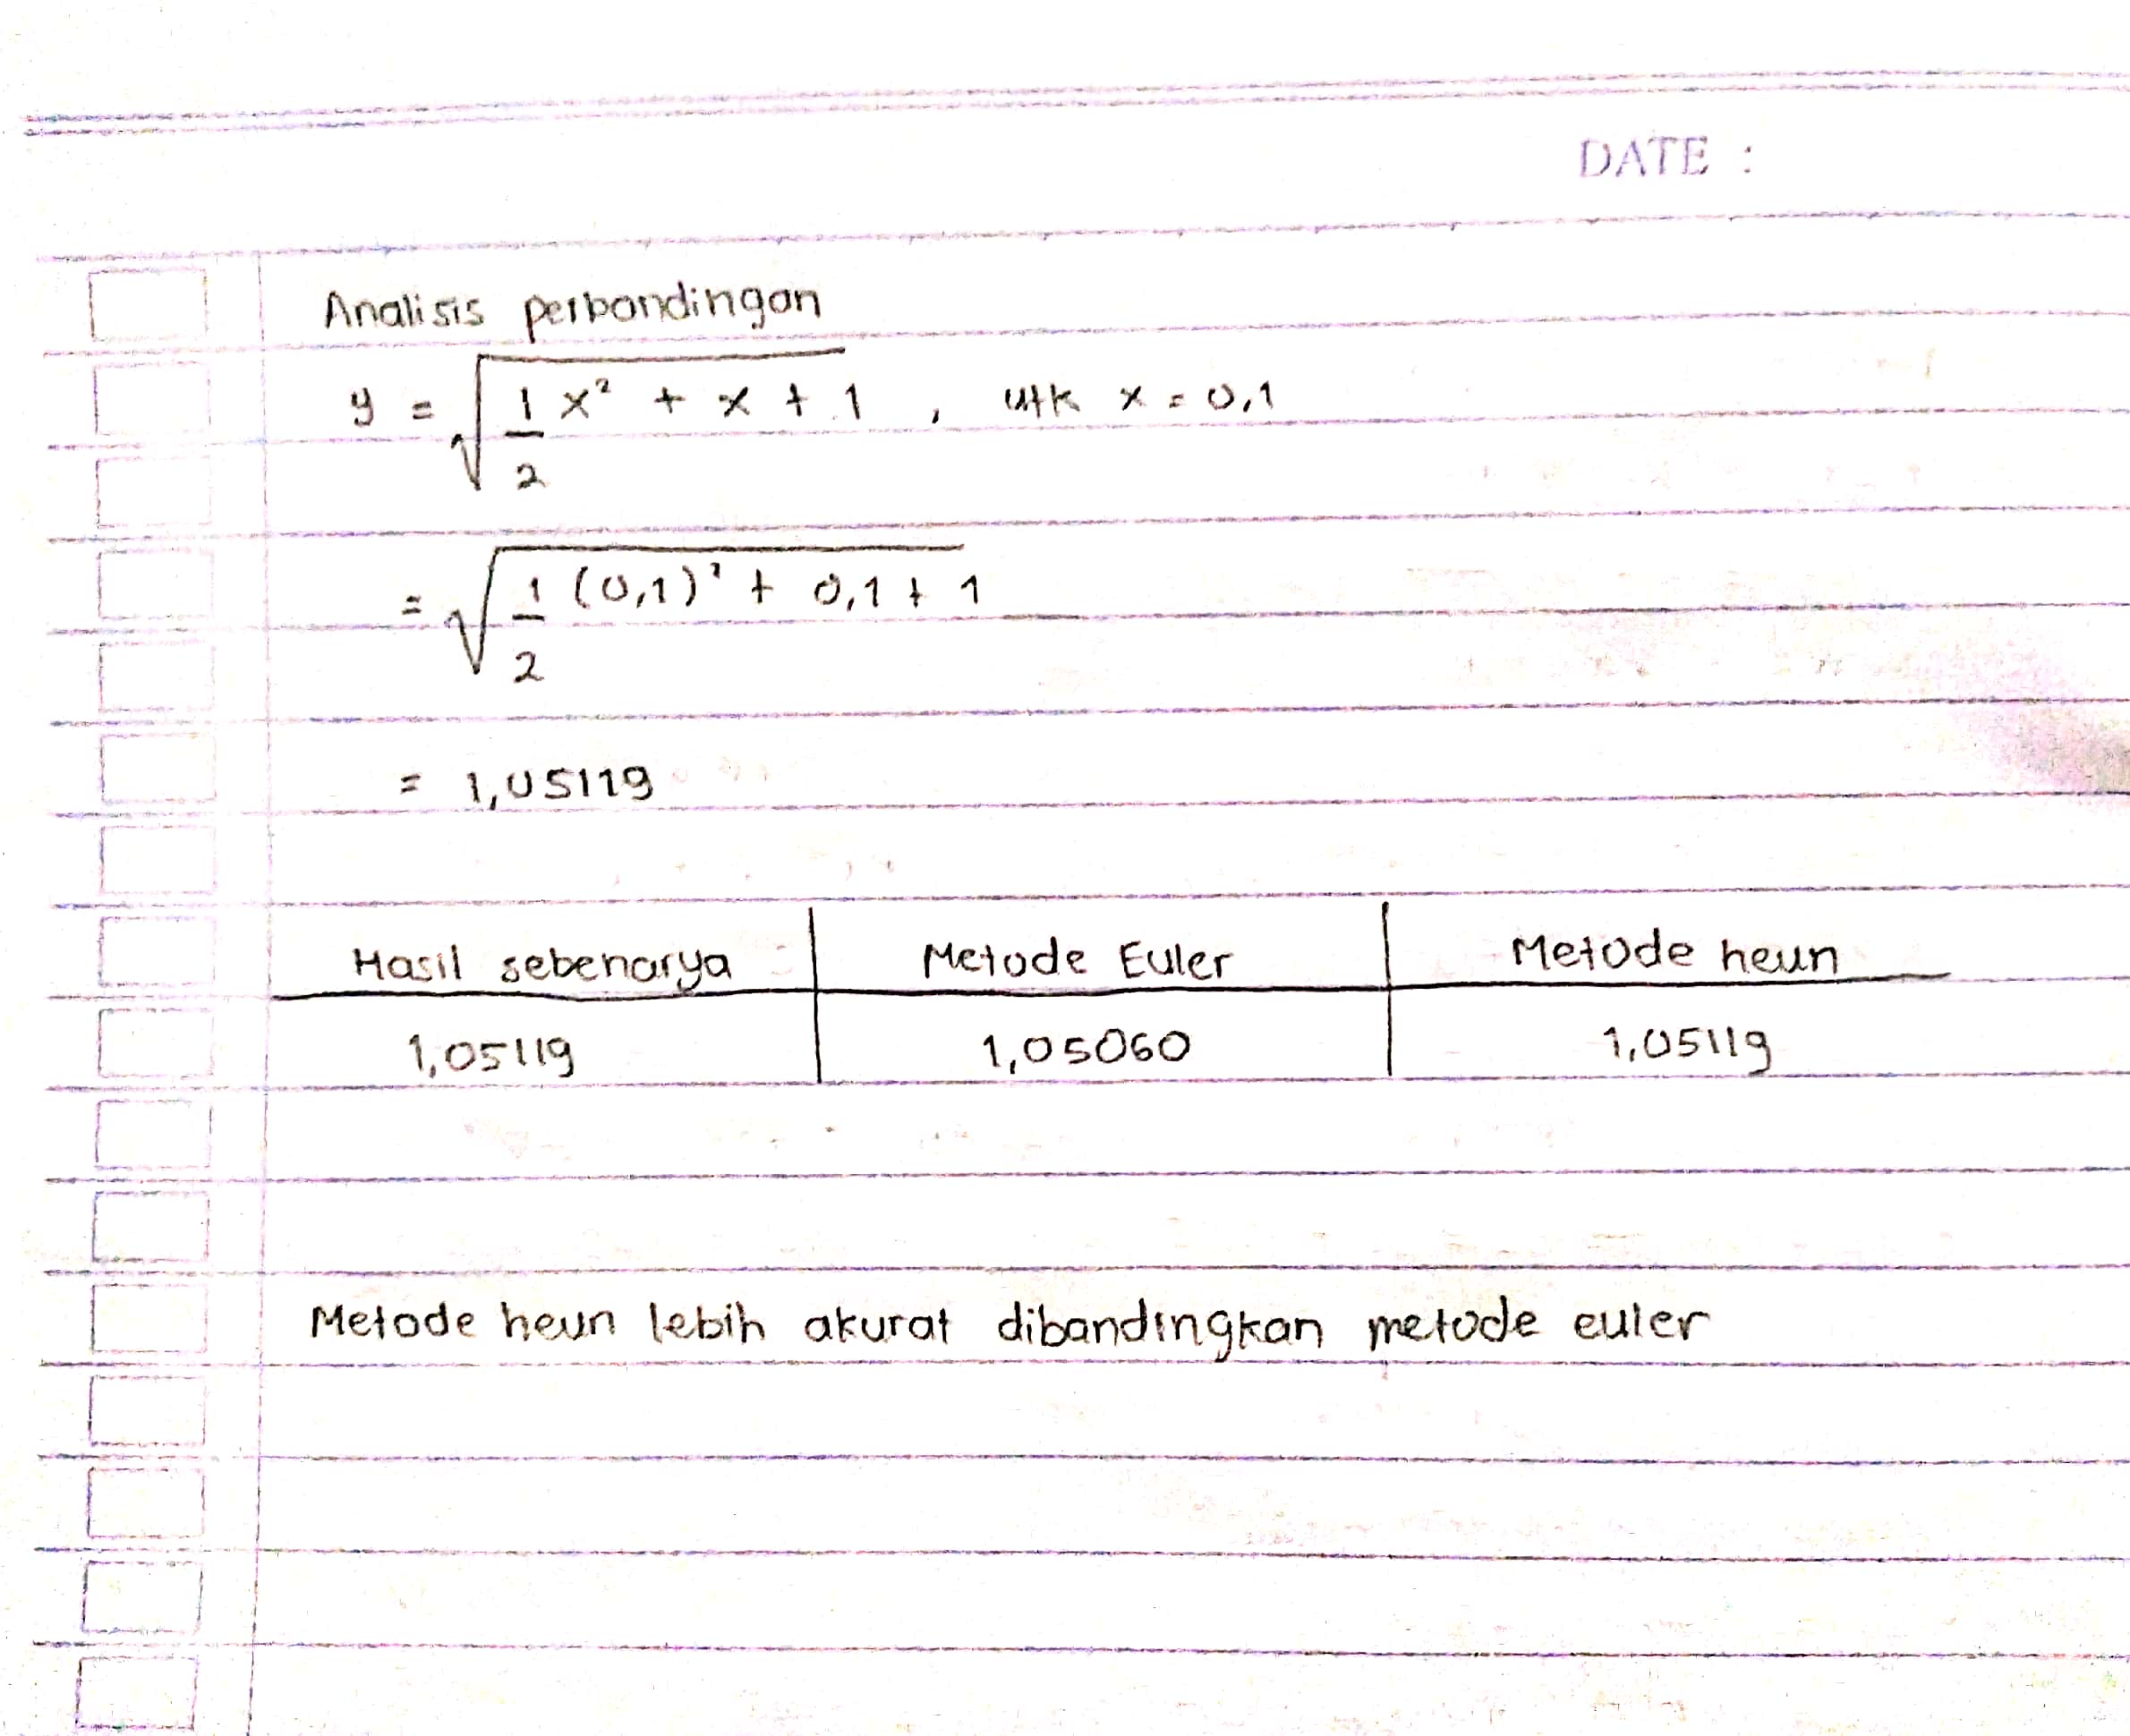 DATE :
Analisis perbandingan
y = √(1/2 x² + x + 1) , utk x = 0,1
= √(1/2 (0,1)² + 0,1 + 1)
= 1,05119
Hasil sebenarya | Metode Euler | Metode heun
1,05119 | 1,05060 | 1,05119
Metode heun lebih akurat dibandingkan metode euler